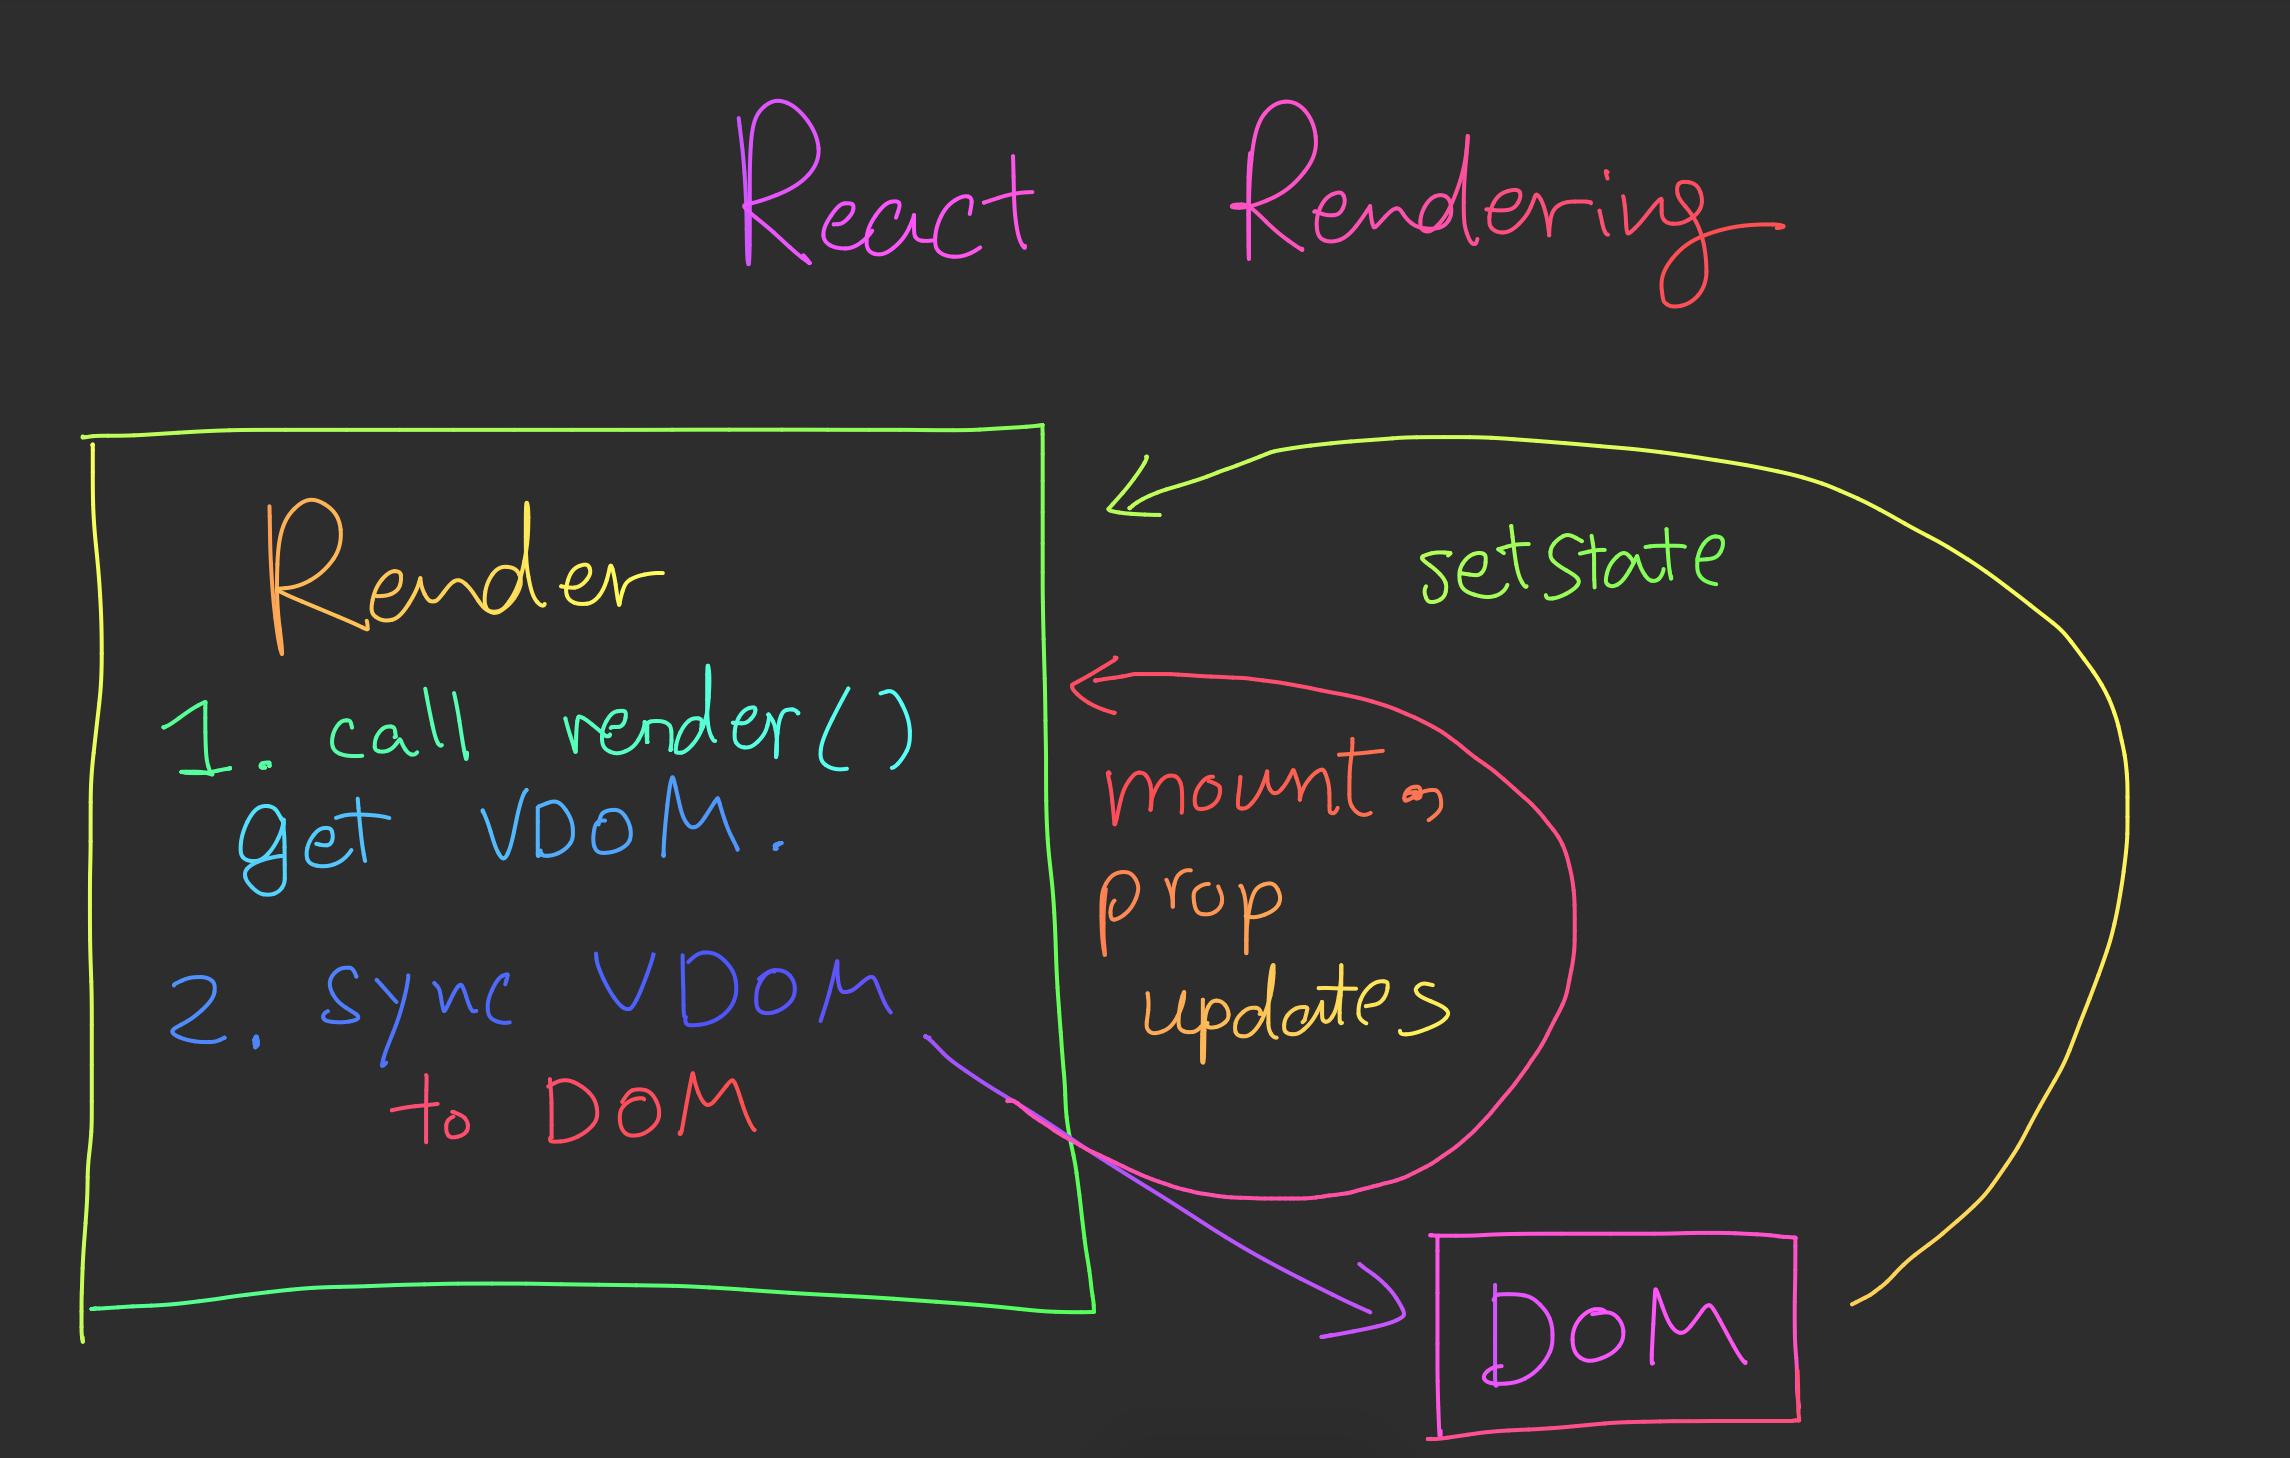 React Rendering
Render
1. call render()
get VDOM.
2. sync VDOM
to DOM
setState
mount,
prop
updates
DOM